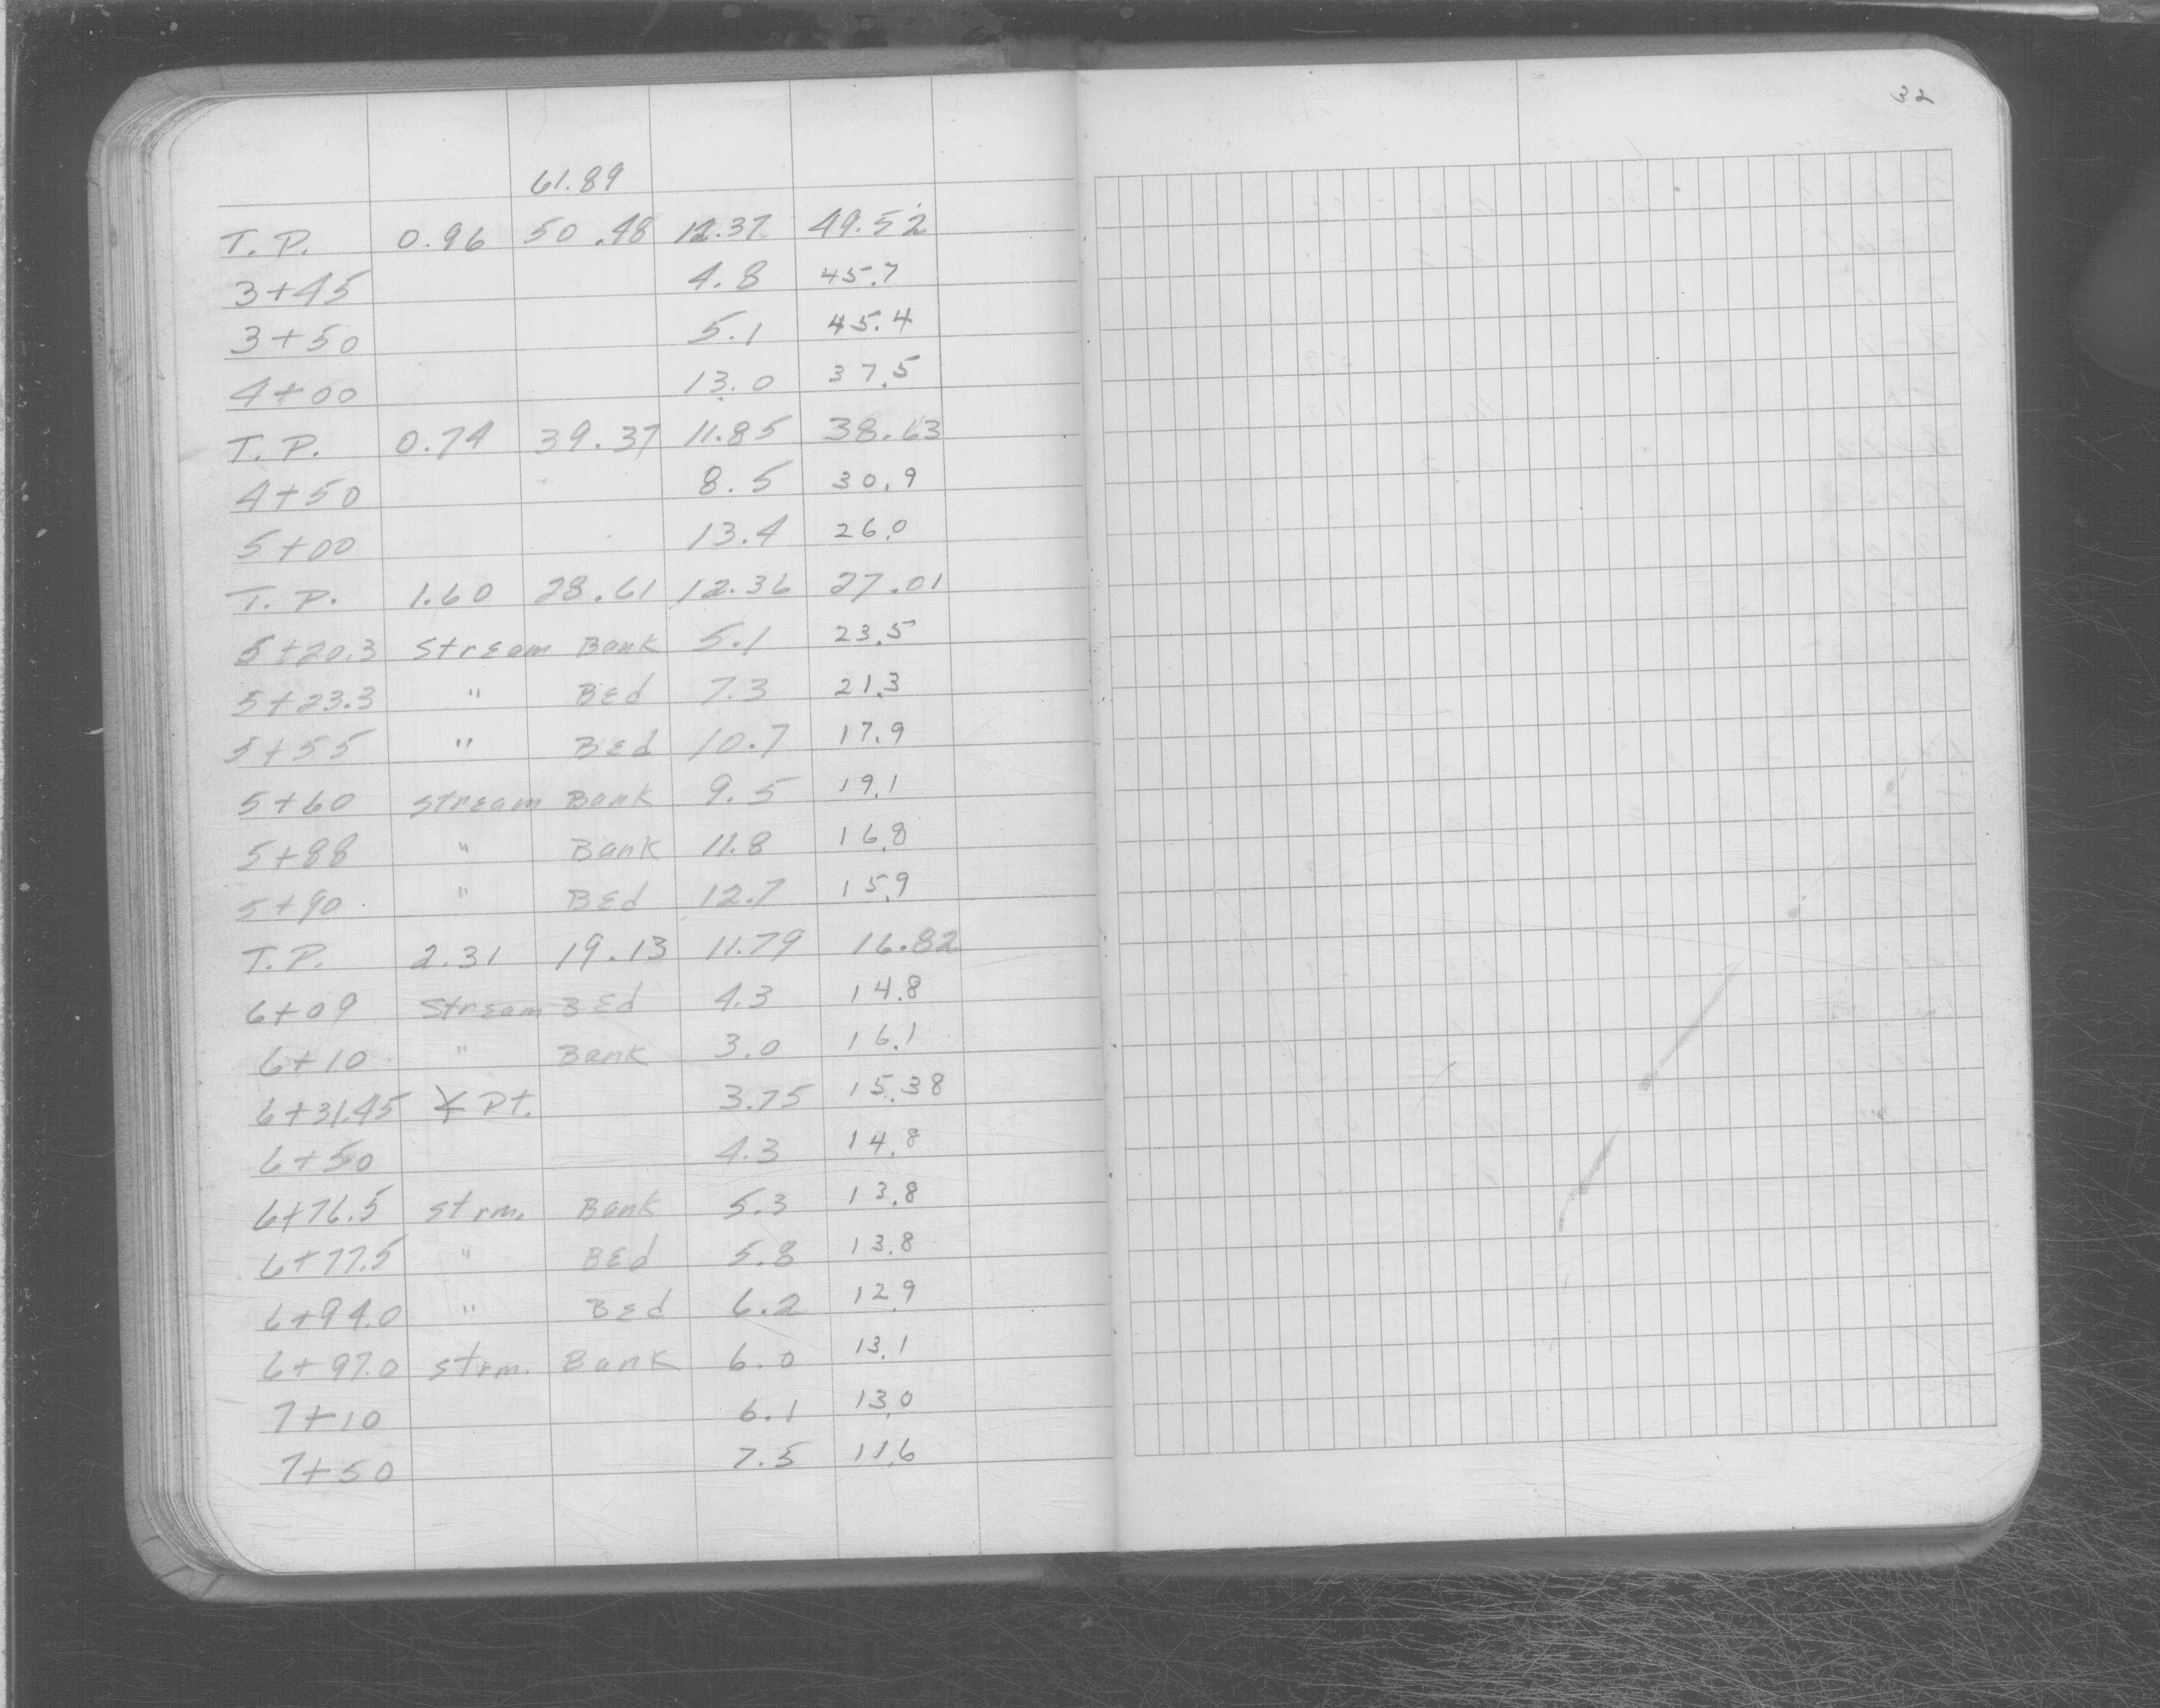 61.89
T.P. 0.96 50.48 12.37 49.52
3+45 4.8 45.7
3+50 5.1 45.4
4+00 13.0 37.5
T.P. 0.74 39.37 11.85 38.63
4+50 8.5 30.9
5+00 13.4 26.0
T.P. 1.60 28.61 12.36 27.01
5+20.3 Stream Bank 5.1 23.5
5+23.3 " Bed 7.3 21.3
5+55 " Bed 10.7 17.9
5+60 Stream Bank 9.5 19.1
5+88 " Bank 11.8 16.8
5+90 " Bed 12.7 15.9
T.P. 2.31 19.13 11.79 16.82
6+09 Stream Bed 4.3 14.8
6+10 " Bank 3.0 16.1
6+31.45 Pt. 3.75 15.38
6+50 4.3 14.8
6+76.5 strm. Bank 5.3 13.8
6+77.5 " Bed 5.8 13.8
6+94.0 " Bed 6.2 12.9
6+97.0 strm. Bank 6.0 13.1
7+10 6.1 13.0
7+50 7.5 11.6
32